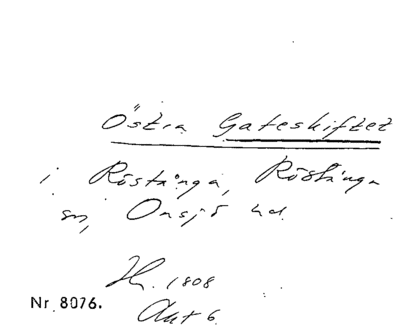 Östra Gateskiftet
i Röstånga, Röstånga
sn, Onsjö hd.
Hr. 1808
Akt 6
Nr. 8076.